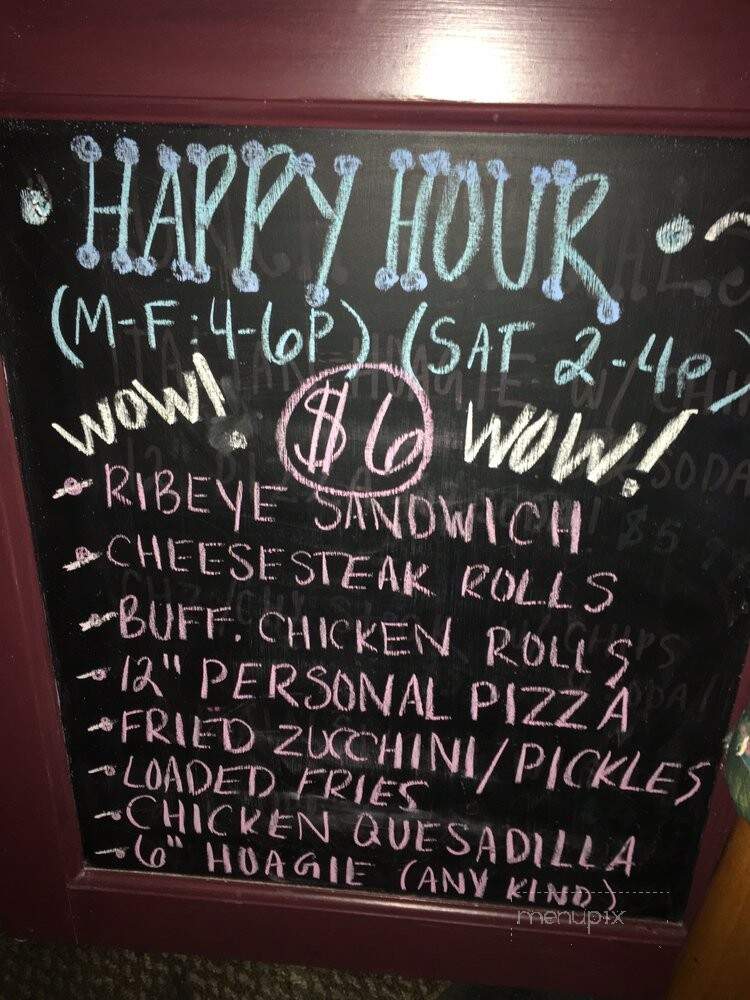 HAPPY HOUR
(M-F: 4-6P) (SAT 2-4P)
WOW! $6 WOW!
RIBEYE SANDWICH
CHEESESTEAK ROLLS
BUFF. CHICKEN ROLLS
12" PERSONAL PIZZA
FRIED ZUCCHINI/PICKLES
LOADED FRIES
CHICKEN QUESADILLA
6" HOAGIE (ANY KIND)
menupix